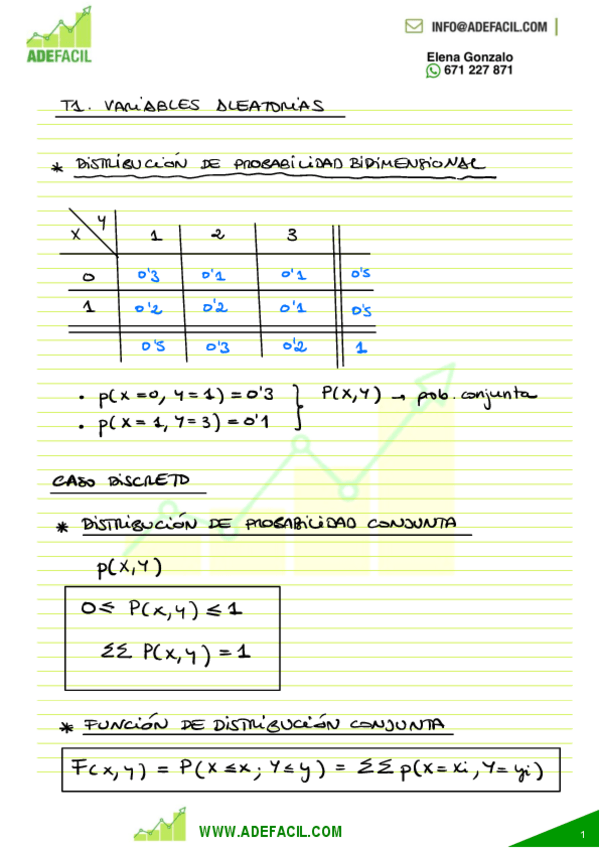 ADEFACIL
INFO@ADEFACIL.COM
Elena Gonzalo
671 227 871
T1. VARIABLES ALEATORIAS
* DISTRIBUCIÓN DE PROBABILIDAD BIDIMENSIONAL
X Y 1 2 3
0 0'3 0'1 0'1 0'5
1 0'2 0'2 0'1 0'5
0'5 0'3 0'2 1
• p(X=0, Y=1) = 0'3 } P(X,Y) → prob. conjunta
• p(X=1, Y=3) = 0'1
CASO DISCRETO
* DISTRIBUCIÓN DE PROBABILIDAD CONJUNTA
p(X,Y)
0 ≤ P(X,Y) ≤ 1
ΣΣ P(X,Y) = 1
* FUNCIÓN DE DISTRIBUCIÓN CONJUNTA
F(x,y) = P(X≤x; Y≤y) = ΣΣ p(X=xi, Y=yi)
WWW.ADEFACIL.COM
1